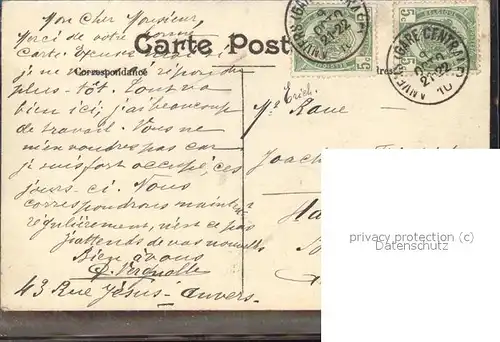 Mon Cher Monsieur,
Merci de votre
Carte. Excusez moi si
je ne vous ai répondu
plus-tôt. Tout va
bien ici, j'ai beaucoup
de travail. Vous ne
m'en voudrez pas car
je suis fort occupé, ces
jours-ci. Nous
correspondrons mainten
régulièrement, n'est ce pas
J'attends de vos nouvelles
Bien à vous
43 Rue Jésus - Anvers.
Carte Post
Correspondance
ANVERS (GARE CENTRALE)
21-22
10
5c 5c
ANVERS (GARE CENTRALE)
21-22
10
5c 5c
Erich.
Mr Raue
Joach
Ha
privacy protection (c)
Datenschutz